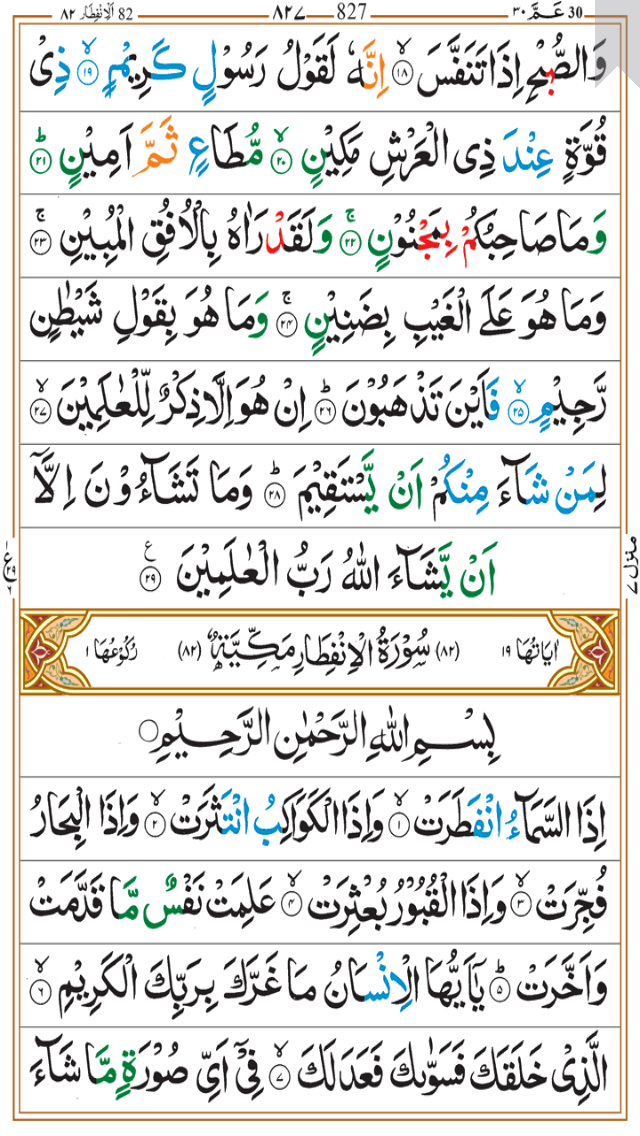 30 عَمَّ ٣٠ — 827 ٨٢٧ — 82 اَلْاِنْفِطَار ٨٢
وَالصُّبْحِ اِذَا تَنَفَّسَ ۙ﴿۱۸﴾ اِنَّهٗ لَقَوْلُ رَسُوْلٍ كَرِيْمٍ ۙ﴿۱۹﴾ ذِىْ
قُوَّةٍ عِنْدَ ذِى الْعَرْشِ مَكِيْنٍ ۙ﴿۲۰﴾ مُّطَاعٍ ثَمَّ اَمِيْنٍ ؕ﴿۲۱﴾
وَمَا صَاحِبُكُمْ بِمَجْنُوْنٍ ۚ﴿۲۲﴾ وَلَقَدْ رَاٰهُ بِالْاُفُقِ الْمُبِيْنِ ۚ﴿۲۳﴾
وَمَا هُوَ عَلَى الْغَيْبِ بِضَنِيْنٍ ۚ﴿۲۴﴾ وَمَا هُوَ بِقَوْلِ شَيْطٰنٍ
رَّجِيْمٍ ۙ﴿۲۵﴾ فَاَيْنَ تَذْهَبُوْنَ ؕ﴿۲۶﴾ اِنْ هُوَ اِلَّا ذِكْرٌ لِّلْعٰلَمِيْنَ ۙ﴿۲۷﴾
لِمَنْ شَآءَ مِنْكُمْ اَنْ يَّسْتَقِيْمَ ؕ﴿۲۸﴾ وَمَا تَشَآءُوْنَ اِلَّاۤ
اَنْ يَّشَآءَ اللّٰهُ رَبُّ الْعٰلَمِيْنَ ﴿۲۹﴾ ع
منزل ٧
اٰيَاتُهَا ١٩ (٨٢) سُوْرَةُ الْاِنْفِطَارِ مَكِّيَّةٌ (٨٢) رُكُوْعُهَا ١
بِسْمِ اللّٰهِ الرَّحْمٰنِ الرَّحِيْمِ
اِذَا السَّمَآءُ انْفَطَرَتْ ۙ﴿۱﴾ وَاِذَا الْكَوَاكِبُ انْتَثَرَتْ ۙ﴿۲﴾ وَاِذَا الْبِحَارُ
فُجِّرَتْ ۙ﴿۳﴾ وَاِذَا الْقُبُوْرُ بُعْثِرَتْ ۙ﴿۴﴾ عَلِمَتْ نَفْسٌ مَّا قَدَّمَتْ
وَاَخَّرَتْ ؕ﴿۵﴾ يٰۤاَيُّهَا الْاِنْسَانُ مَا غَرَّكَ بِرَبِّكَ الْكَرِيْمِ ۙ﴿۶﴾
الَّذِىْ خَلَقَكَ فَسَوّٰىكَ فَعَدَلَكَ ۙ﴿۷﴾ فِىْۤ اَىِّ صُوْرَةٍ مَّا شَآءَ